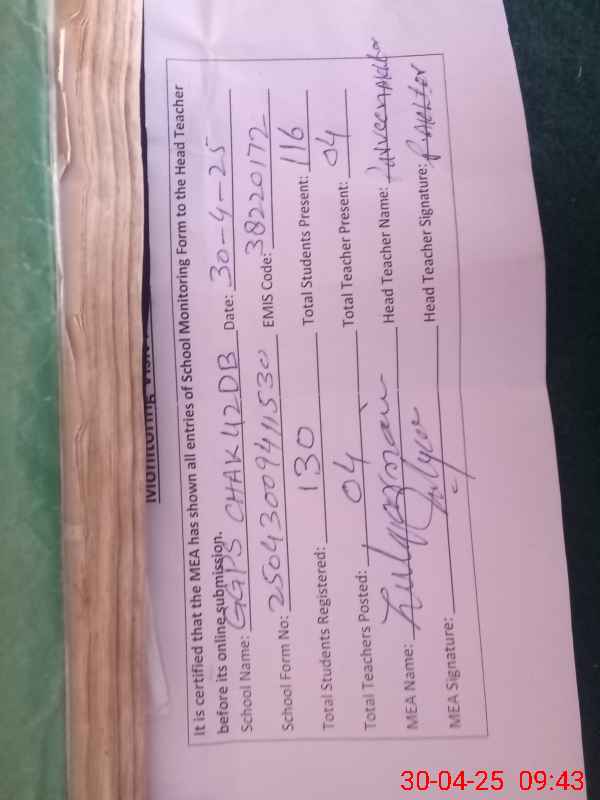 It is certified that the MEA has shown all entries of School Monitoring Form to the Head Teacher
before its online submission.
School Name: GGPS CHAK 42DB Date: 30-4-25
School Form No: 25043009411530 EMIS Code: 38220172
Total Students Registered: 130 Total Students Present: 116
Total Teachers Posted: 04 Total Teacher Present: 04
MEA Name: Zulqarnain Head Teacher Name: Parveen Akhtar
MEA Signature: Head Teacher Signature: P. Akhtar
30-04-25 09:43